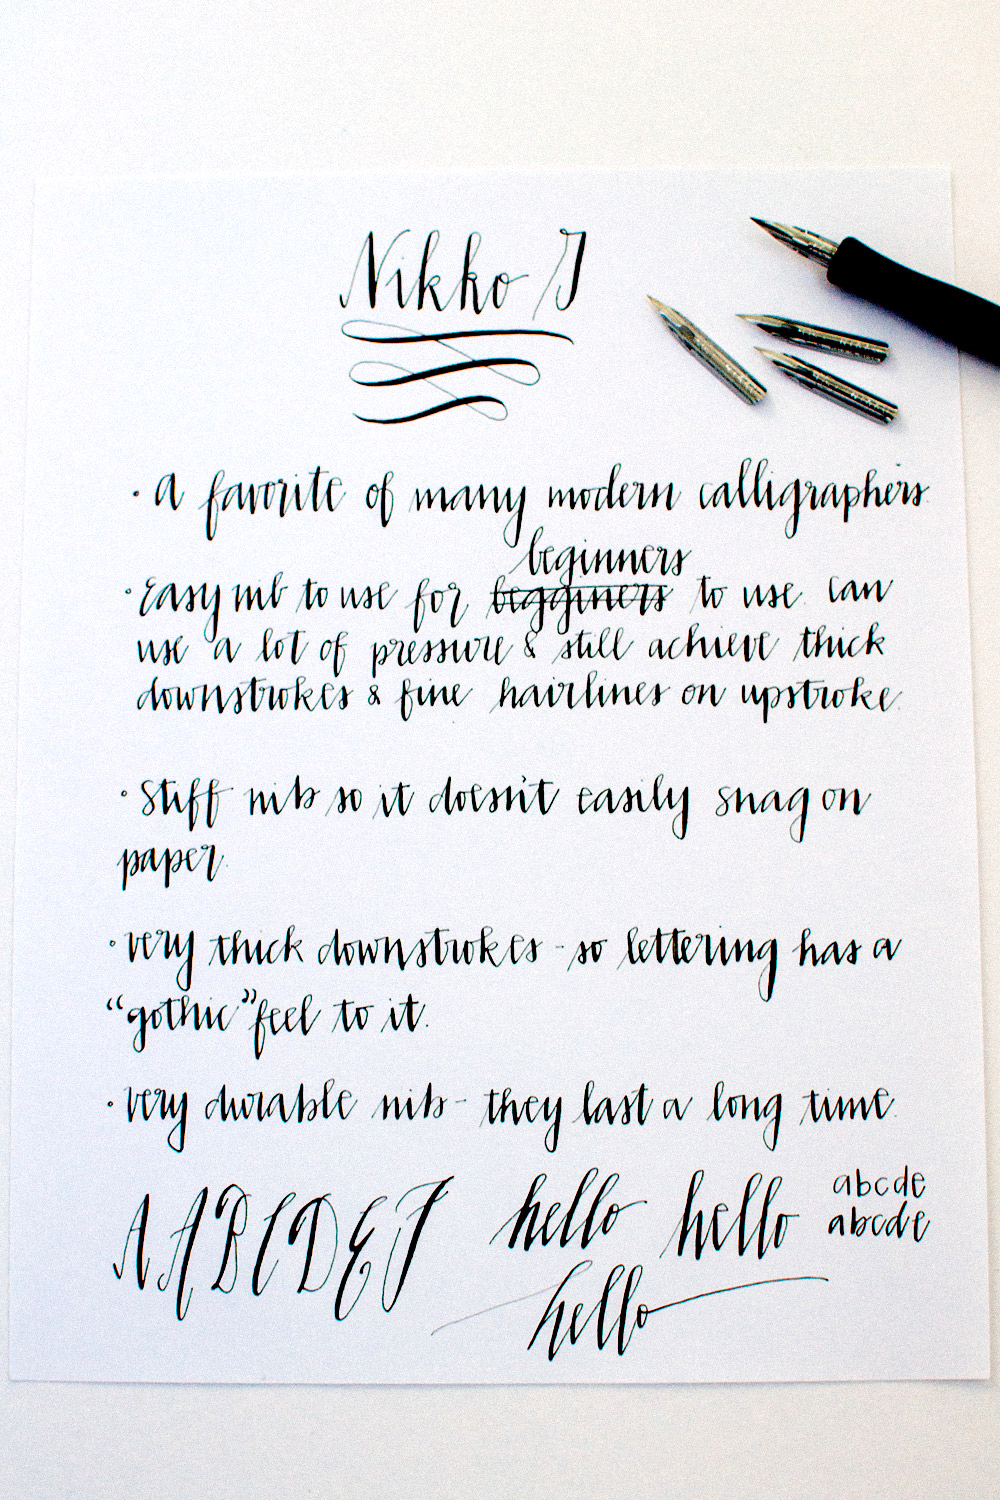 Nikko G
• a favorite of many modern calligraphers.
beginners
• Easy nib to use for begginers to use. can
use a lot of pressure & still achieve thick
downstrokes & fine hairlines on upstroke.
• Stiff nib so it doesn't easily snag on
paper.
• very thick downstrokes - so lettering has a
"gothic" feel to it.
• very durable nib - they last a long time.
A A B C D E F hello hello abcde
abcde
hello